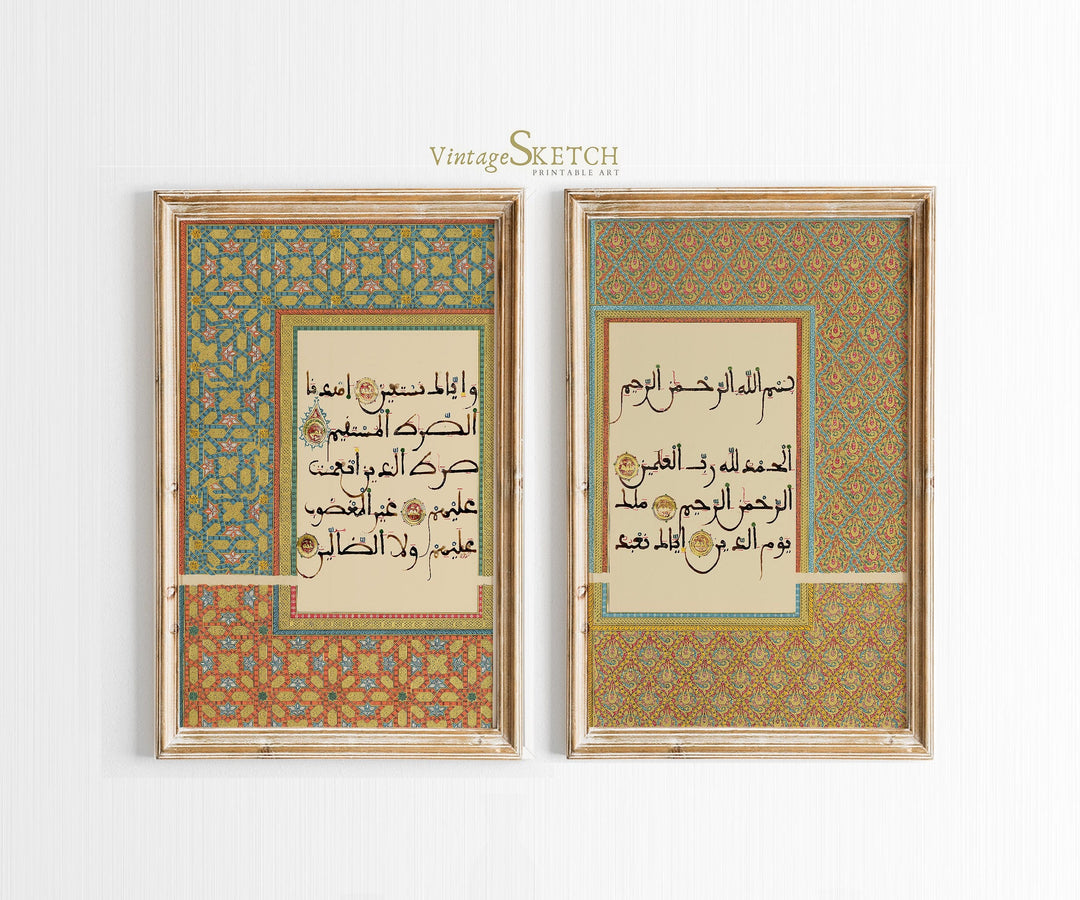 VintageSKETCH
PRINTABLE ART
بسم الله الرحمن الرحيم
الحمد لله رب العلمين
الرحمن الرحيم ملك
يوم الدين إياك نعبد
وإياك نستعين اهدنا
الصرط المستقيم
صرط الذين أنعمت
عليهم غير المغضوب
عليهم ولا الضالين